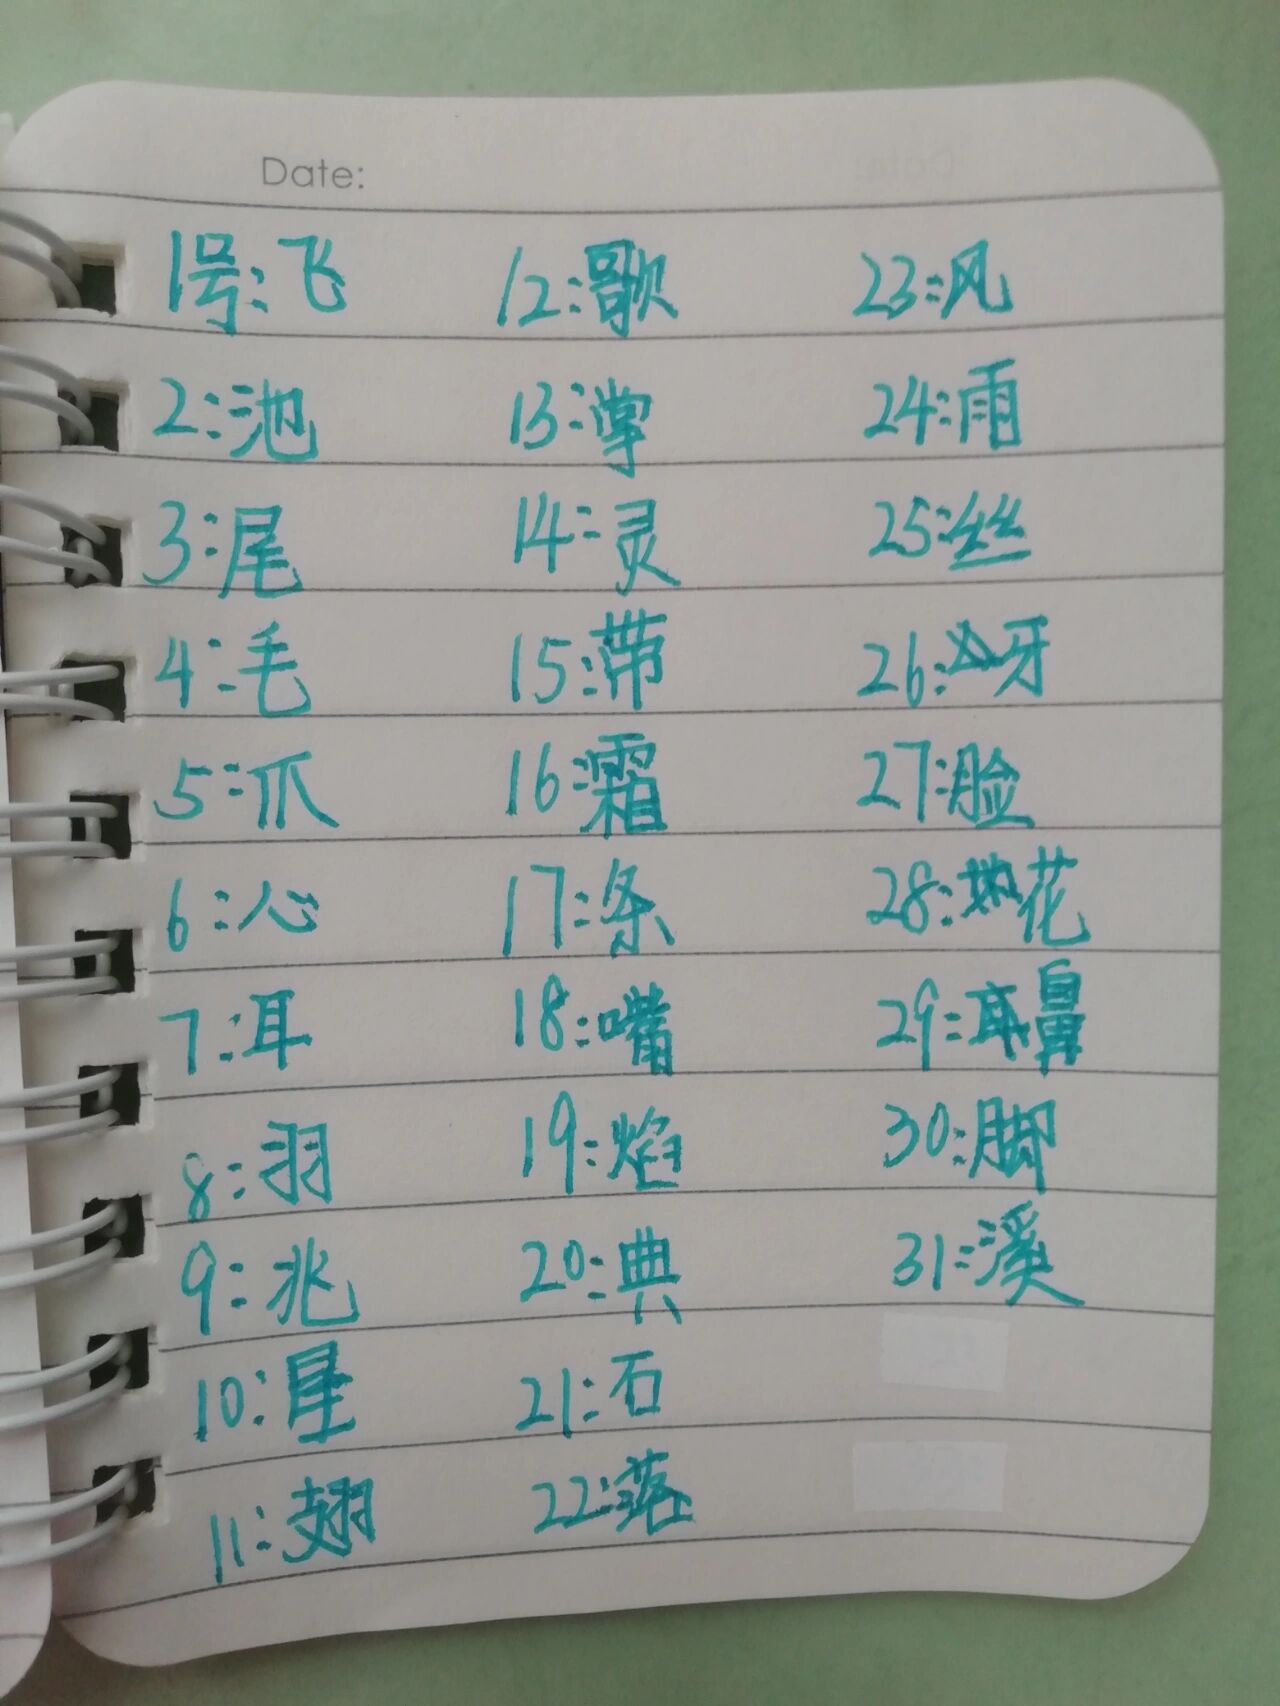 Date:
1号:飞 12:歌 23:风
2:池 13:掌 24:雨
3:尾 14:灵 25:丝
4:毛 15:带 26:牙
5:爪 16:霜 27:脸
6:心 17:条 28:花
7:耳 18:嘴 29:鼻
8:羽 19:焰 30:脚
9:兆 20:典 31:溪
10:星 21:石
11:翅 22:落